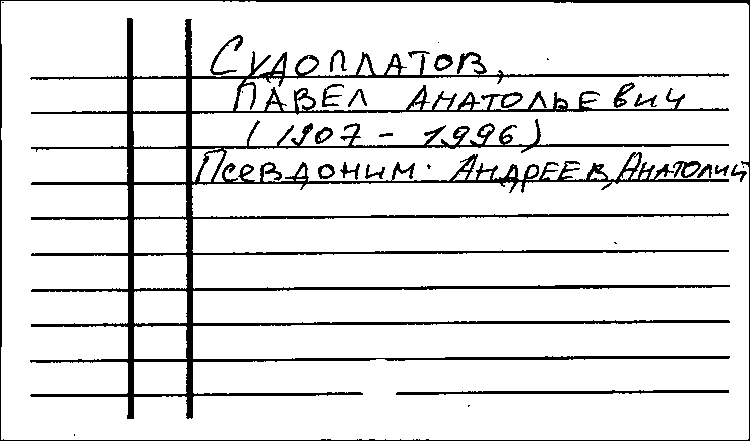 Судоплатов,
Павел Анатольевич
(1907 - 1996)
Псевдоним: Андреев, Анатолий